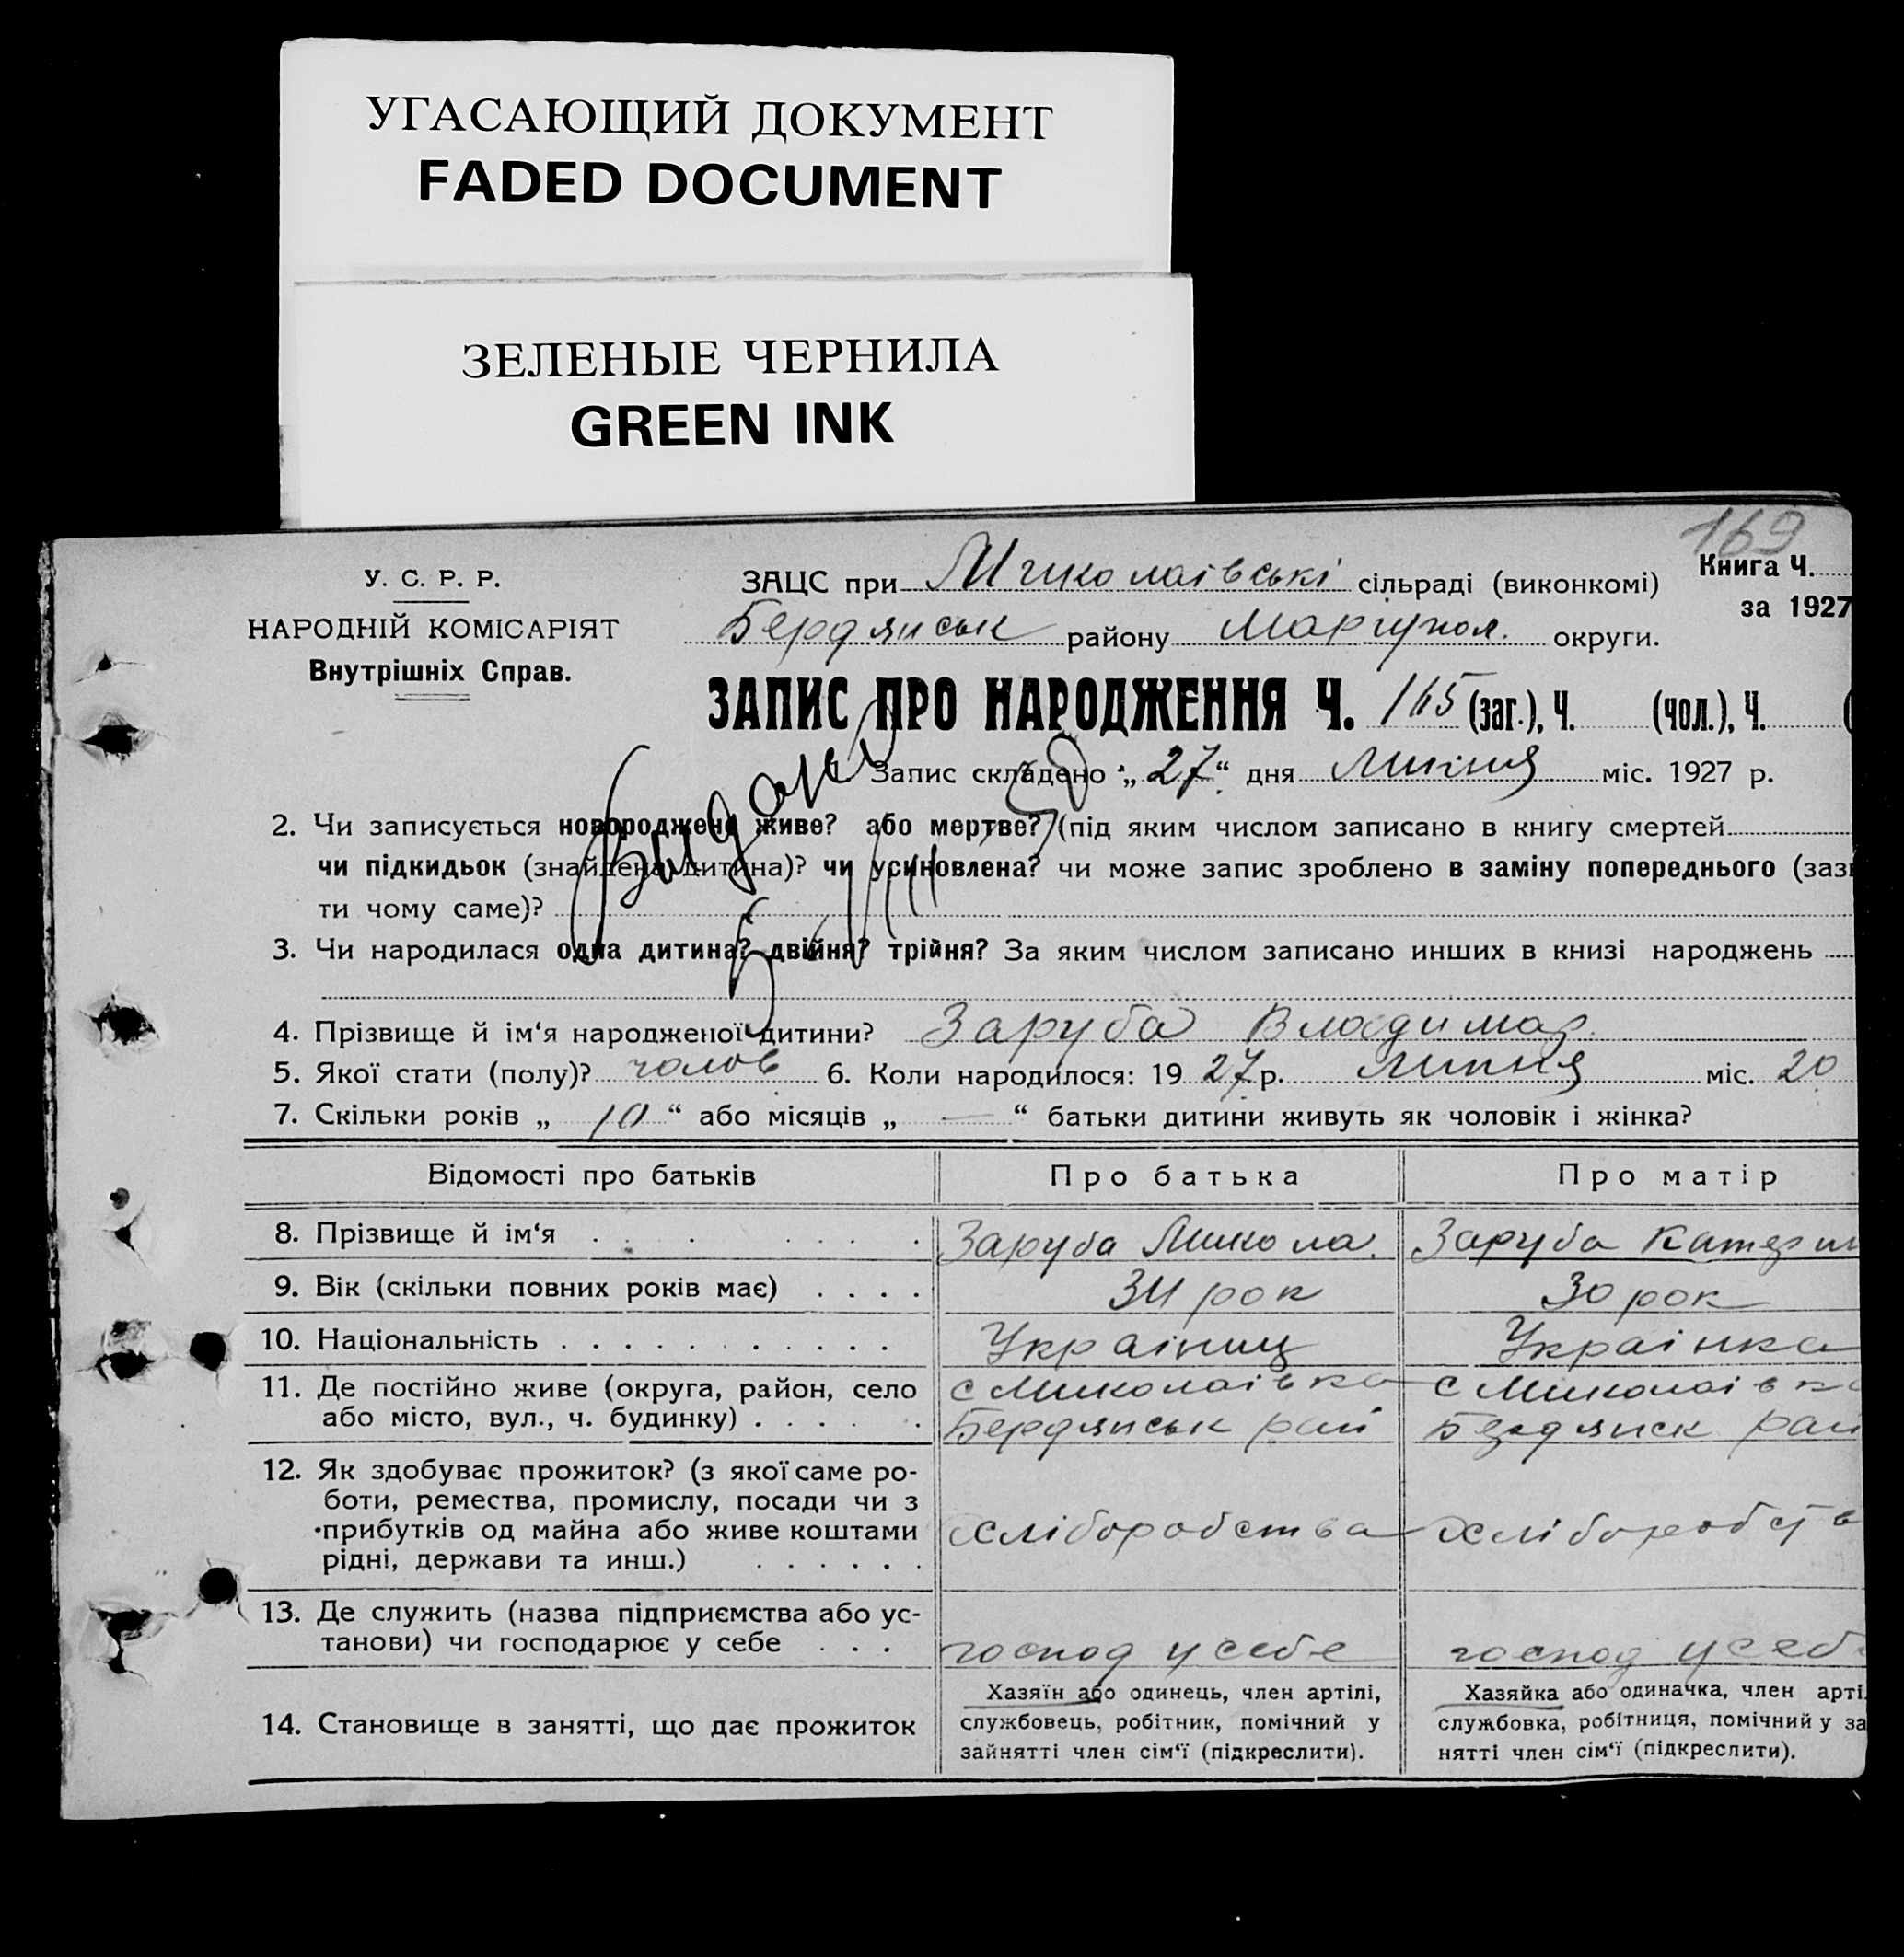 УГАСАЮЩИЙ ДОКУМЕНТ
FADED DOCUMENT
ЗЕЛЕНЫЕ ЧЕРНИЛА
GREEN INK
169
У. С. Р. Р.
НАРОДНІЙ КОМІСАРІЯТ
Внутрішніх Справ.
ЗАЦС при Миколаівські сільраді (виконкомі)
Книга Ч.
за 1927
Бердянськ району Маріупол. округи.
ЗАПИС ПРО НАРОДЖЕННЯ Ч. 165 (заг.), Ч. (чол.), Ч. (
1. Запис складено „ 27 “ дня липня міс. 1927 р.
2. Чи записується новороджене живе? або мертве? (під яким числом записано в книгу смертей
чи підкидьок (знайдена дитина)? чи усиновлена? чи може запис зроблено в заміну попереднього (зазн
ти чому саме)?
3. Чи народилася одна дитина? двійня? трійня? За яким числом записано инших в книзі народжень
4. Прізвище й ім‘я народженої дитини? Заруба Владимир.
5. Якої стати (полу)? чолов 6. Коли народилося: 19 27 р. липня міс. 20
7. Скільки років „ 10 “ або місяців „ — “ батьки дитини живуть як чоловік і жінка?
Відомості про батьків Про батька Про матір
8. Прізвище й ім‘я Заруба Микола. Заруба Катерин
9. Вік (скільки повних років має) рок 30 рок
10. Національність Украінць Украінка
11. Де постійно живе (округа, район, село с Миколаівка с Миколаівка
або місто, вул., ч. будинку) Бердянськ рай Бердянск рай
12. Як здобуває прожиток? (з якої саме ро-
боти, ремества, промислу, посади чи з
прибутків од майна або живе коштами хліборобства хліборобств
рідні, держави та инш.)
13. Де служить (назва підприємства або ус-
танови) чи господарює у себе господ у себе господ у себе
14. Становище в занятті, що дає прожиток
Хазяїн або одинець, член артілі,
службовець, робітник, помічний у
зайнятті член сім‘ї (підкреслити).
Хазяйка або одиначка, член арті
службовка, робітниця, помічний у за
нятті член сім‘ї (підкреслити).